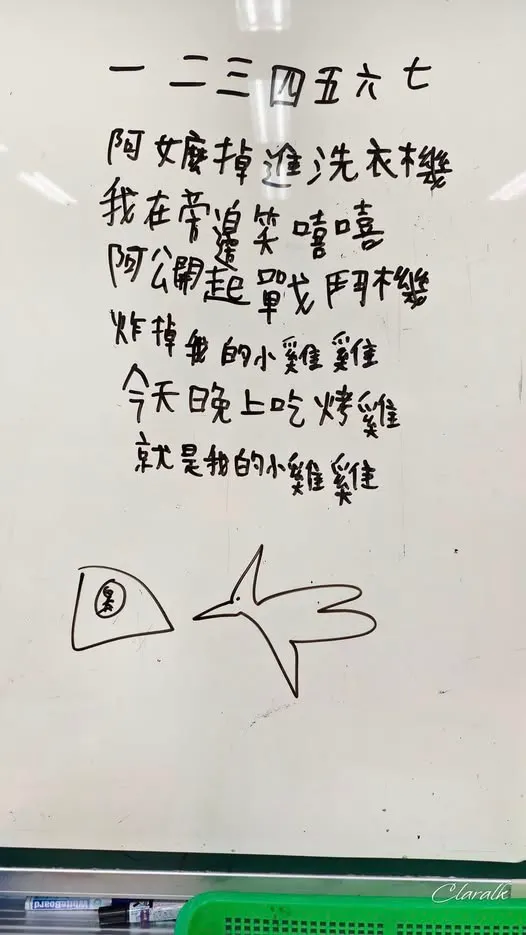 一二三四五六七
阿嬤掉進洗衣機
我在旁邊笑嘻嘻
阿公開起戰鬥機
炸掉我的小雞雞
今天晚上吃烤雞
就是我的小雞雞
WhiteBoard
Claralk